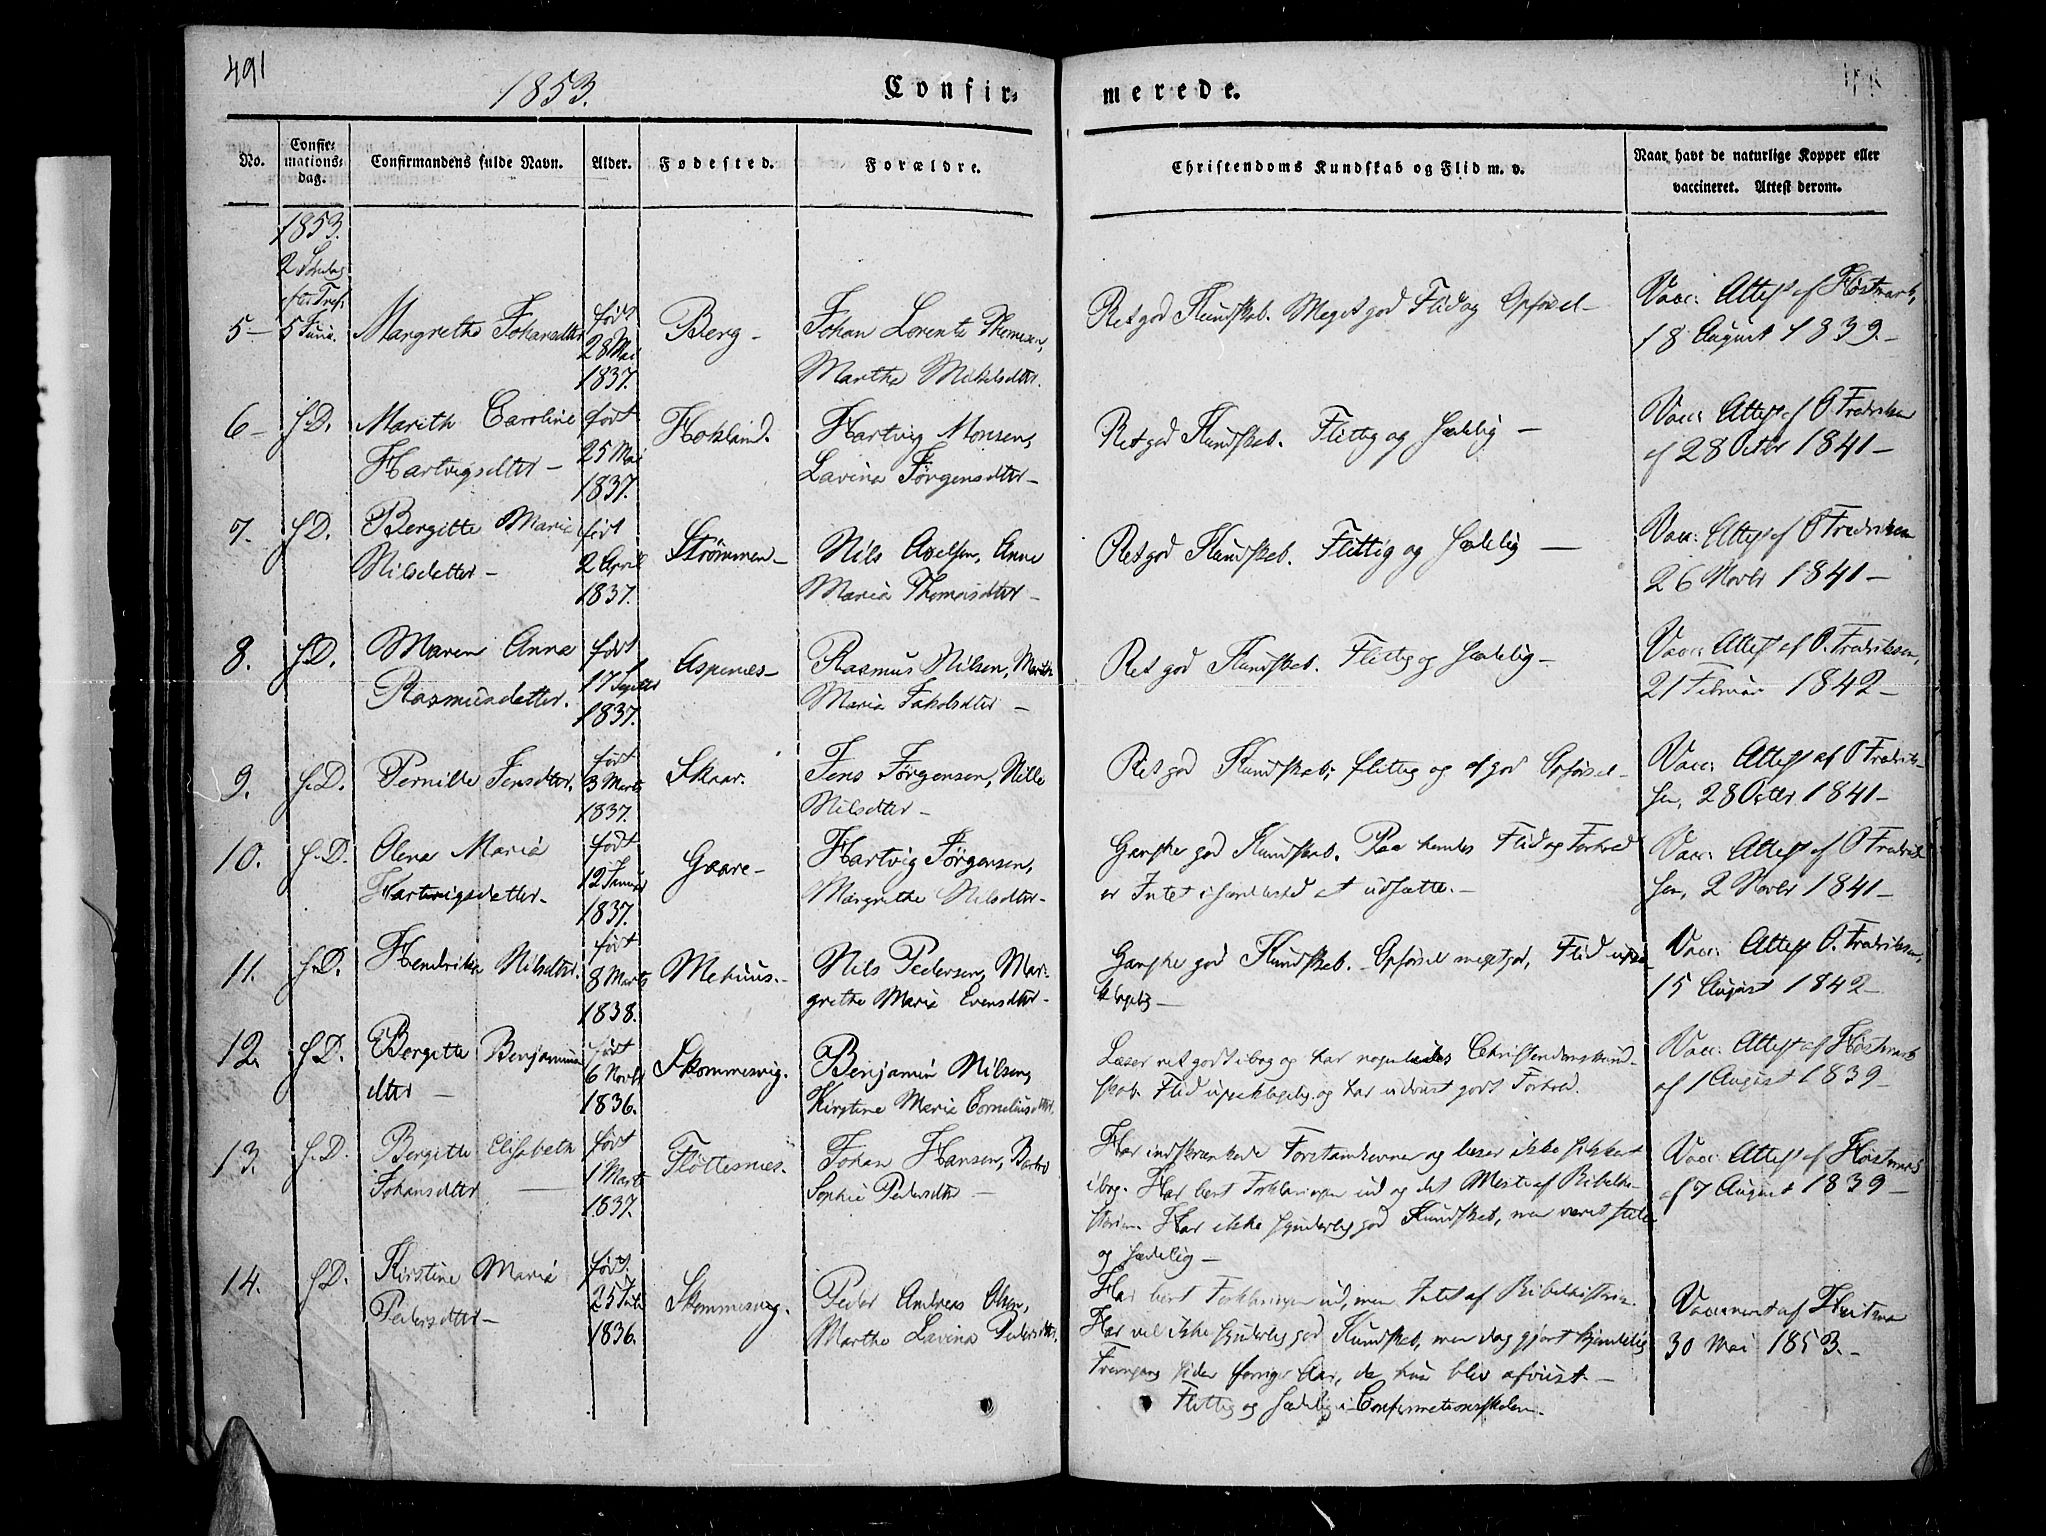 491
1853.
Confir-
merede.
No.
Confir-
mations-
dag.
Confirmandens fulde Navn.
Alder.
Fødested.
Forældre.
Christendoms Kundskab og Flid m. v.
Naar havt de naturlige Kopper eller
vaccineret. Attest derom.
1853.
2 Søndag
5 Juni.
5 - Margrethe Johansdtter født 28 Mai 1837. Berg - Johan Lorents Thomesen,
Marthe Mikelsdtter.
Ret god Kundskab. Meget god Flid og Opførsel -
Vacc: Attest af Høstmark,
18 August 1839. -
6 - h.D. Marith Caroline
Hartvigsdtter - født 25 Mai 1837. Hokland. Hartvig Monsen,
Lavina Jørgensdtter -
Ret god Kundskab. Flittig og sædelig -
Vacc: Attest af O. Fredriksen
af 28 Octbr 1841 -
7. h.D. Bergitte Maria
Nilsdetter - født 2 April 1837. Strømmen - Nils Axelsen, Anne
Maria Thomasdtter -
Ret god Kundskab. Flittig og sædelig -
Vacc: Attest af O Fredriksen
26 Novbr 1841 -
8. h.D. Maren Anna
Rasmusdetter. født 17 Septbr 1837. Aspenes - Rasmus Nilsen, Marith
Maria Jakobsdtter -
Ret god Kundskab. Flittig og sædelig -
Vacc: Attest af O. Fredriksen,
21 Februar 1842 -
9. h.D. Pernille Jensdtter. født 3 Marts 1837. Skaar. Jens Jørgensen, Nille
Nilsdtter -
Ret god Kundskab, flittig og af god Opførsel -
Vacc: Attest af O Fredrik-
sen, 28 Octbr 1841 -
10. h.D. Olena Maria
Hartvigsdetter - født 12 Januar 1837. Gaare - Hartvig Jørgensen,
Margrethe Nilsdtter -
Ganske god Kundskab. Paa hendes Flid og Forhold
er Intet i særdeleshed at udsætte. -
Vacc: Attest af O Fredrik-
sen, 2 Novbr 1841 -
11. h.D. Hendrika Nilsdtter. født 8 Marts 1838. Nils Pedersen, Mar-
grethe Maria Evensdtter -
Ganske god Kundskab. Opførsel meget god, Flid upaa-
klagelig -
Vacc: Attest O. Fredriksen,
15 August 1842 -
12. h.D. Bergitte Benjamins
dtter - født 6 Novbr 1836. Skommesvig. Benjamin Nilsen,
Kirstine Maria Corneliusdtter.
Læser ret godt i bog og har nogenlunde Christendomskund-
skab. Flid upaaklagelig og har udviist godt Forhold.
Vacc: Attest af Høstmark
af 1 August 1839 -
13. h.D. Bergitte Elisabeth
Johansdtter - født 1 Marts 1837. Fløttesnes. Johan Hansen, Berthe
Sophie Pedersdtter -
Har indskrænkede Forstandsevner og læser ikke sikkert
i bog. Har lært Forklaringen ud og det Meste af Bibelhi-
storien. Har ikke synderlig god Kundskab, men været stille
og sædelig -
Vacc: Attest af Høstmark
af 7 August 1839 -
14. h.D. Kirstine Maria
Pedersdtter - født 25 Juli 1836. Skommesvig. Peder Andreas Olsen,
Marthe Lavina Pedersdtter.
Har lært Forklaringen ud, men Intet af Bibelhistorien.
Har vel ikke synderlig god Kundskab, men dog gjort kjendelig
Fremgang siden forrige Aar, da hun blev afviist -
Flittig og sædelig i Confirmationsskolen -
Vaccineret af
30 Mai 1853. -